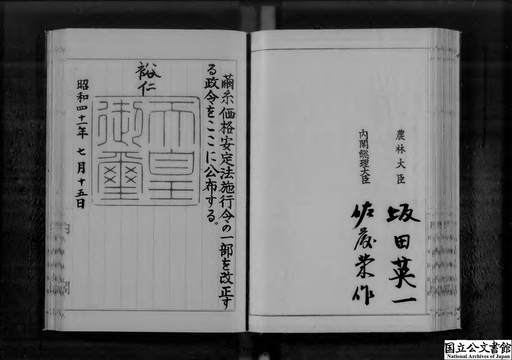 繭糸価格安定法施行令の一部を改正す
る政令をここに公布する。
裕仁
天皇
御璽
昭和四十一年七月十五日
農林大臣
坂田英一
内閣総理大臣
佐藤栄作
国立公文書館
National Archives of Japan